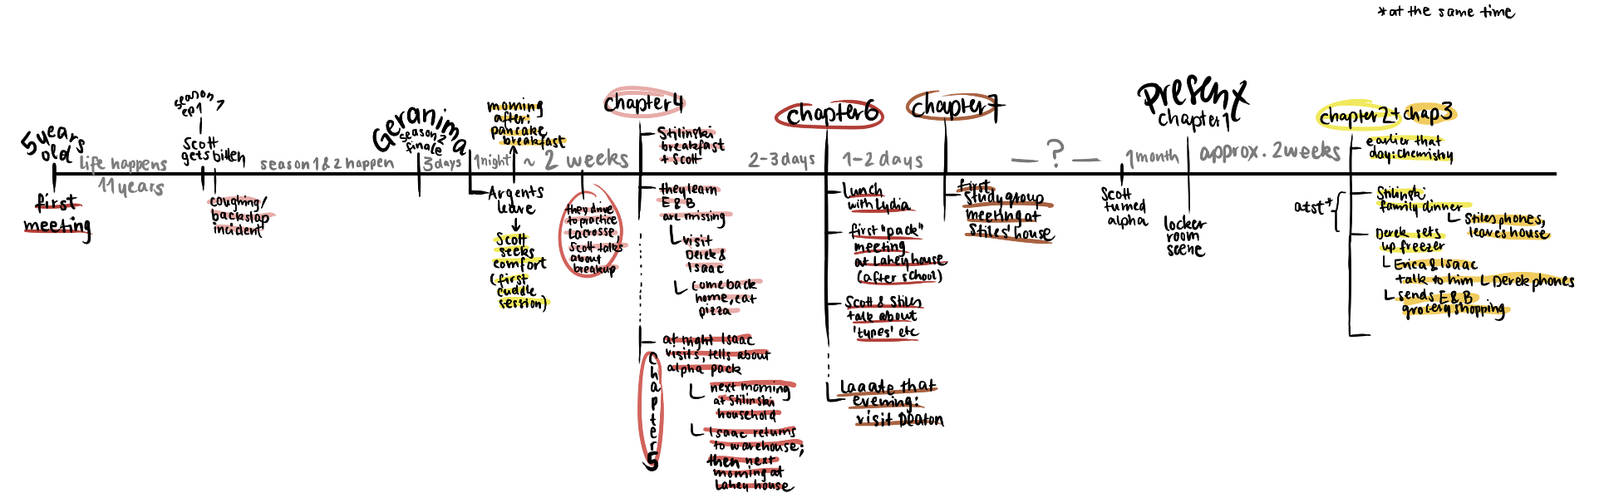 *at the same time
5 years
old
life happens
11 years
first
meeting
season 1
ep 1
Scott
gets bitten
coughing/
backslap
incident
season 1 & 2 happen
Geranima
season 2
finale
3 days
1 night
morning
after:
pancake
breakfast
Argents
leave
Scott
seeks
comfort
(first
cuddle
session)
~ 2 weeks
they drive
to practice
Lacrosse,
Scott talks
about
breakup
chapter 4
Stilinski
breakfast
+ Scott
they learn
E & B
are missing
visit
Derek &
Isaac
come back
home, eat
pizza
at night Isaac
visits, tells about
alpha pack
chapter 5
next morning
at Stilinski
household
Isaac returns
to warehouse;
then next
morning at
Lahey house
2-3 days
chapter 6
Lunch
with Lydia
first "pack"
meeting
at Lahey house
(after school)
Scott & Stiles
talk about
'types' etc
Laaate that
evening:
visit Deaton
1-2 days
chapter 7
first
Study group
meeting at
Stiles' house
— ? —
Scott
turned
alpha
1 month
Present
chapter 1
locker
room
scene
approx. 2 weeks
chapter 2 + chap 3
earlier that
day: chemistry
atst*
Stilinski
family dinner
Stiles phones,
leaves house
Derek sets
up freezer
Erica & Isaac
talk to him
Derek phones
sends E & B
grocery shopping